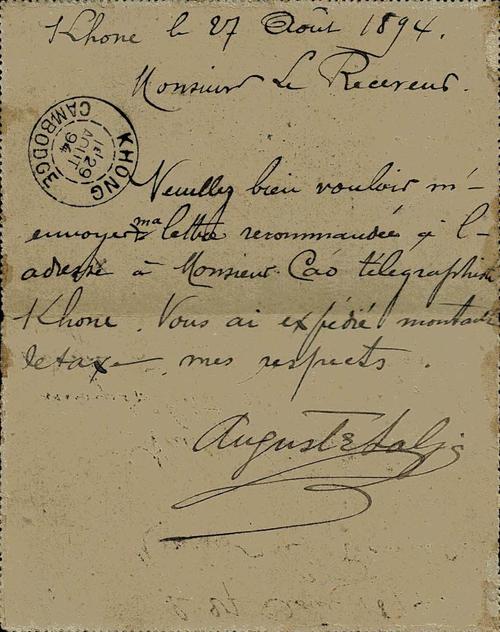 Khone le 27 Août 1894.
Monsieur Le Receveur.
KHONG
CAMBODGE
1er
29
AOUT
94
Veuillez bien vouloir m'-
envoyer ma lettre recommandée à l'-
adresse à Monsieur Cao télégraphiste
Khone. Vous ai expédié montant
de taxe mes respects.
Auguste